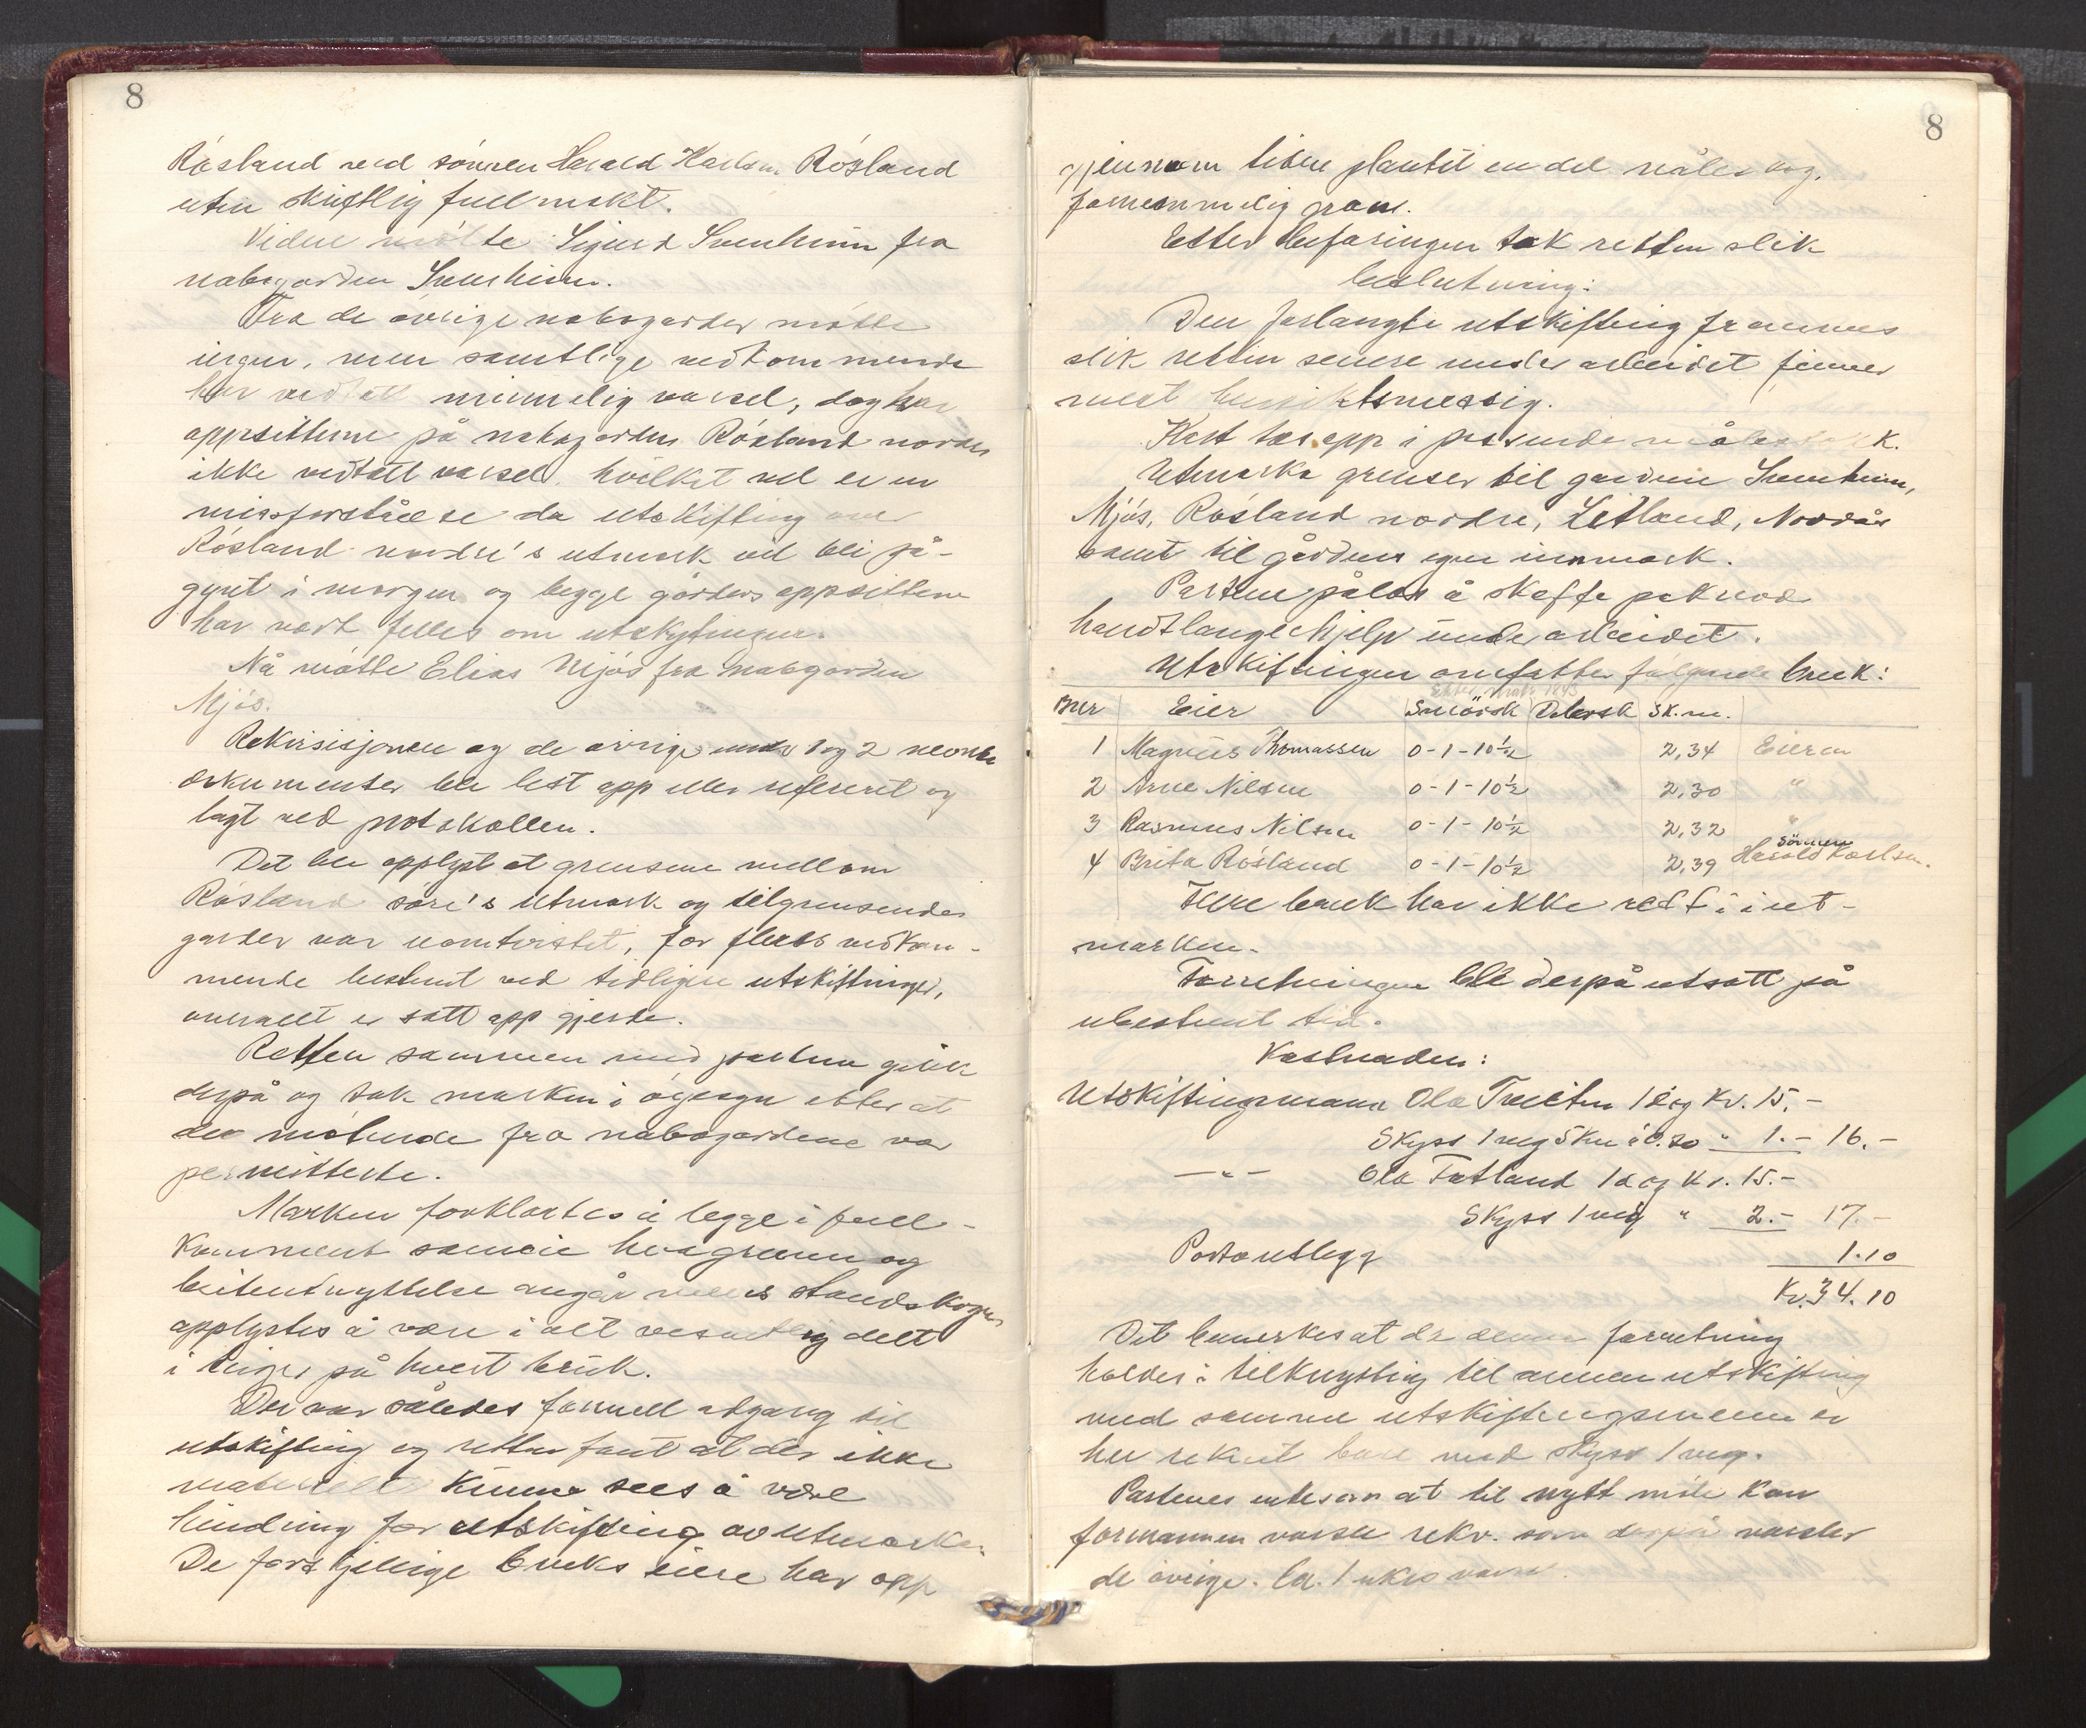 8
Røsland ved sønnen Harald Karlsen Røsland
uten skriftlig fullmakt.
Videre møtte Sigurd Svenheim fra
nabogarden Svenheim.
Fra de øvrige nabogarder møtte
ingen, men samtlige vedkommende
har vedtatt minnelig varsel, dog har
oppsitterne på nabogarden Røsland nordre
ikke vedtatt varsel, hvilket vel er en
missforståelse da utskifting over
Røsland nordre's utmark vil bli på-
gynt i morgen og begge gårders oppsittere
har vært felles om utskiftingen.
Nå møtte Elias Mjøs fra nabogarden
Mjøs.
Rekvisisjonen og de øvrige under 1 og 2 nevnte
dokumenter ble lest opp eller referert og
lagt ved protokollen.
Det ble opplyst at grensene mellom
Røsland søre's utmark og tilgrensende
garder var uomtvistet, for fleres vedkom-
mende bestemt ved tidligere utskiftninger,
overalt er satt opp gjerde.
Retten sammen med partene gikk
derpå og tok marken i øyesyn etter at
de møtende fra nabogardene var
permitterte.
Marken forklartes å legge i full-
komment sameie hvagrunn og
beitendnyttelse angår mens standskogen
opplystes å være i alt vesentlig delt
i teiger på hvert bruk.
Der var således formell adgang til
utskifting og retten fant at der ikke
materielt kunne sees å være
hindring for utskifting av utmarken.
De forskjellige bruks eiere har opp
8
gjennom tidene plantet en del nåleskog,
fornemmelig gran.
Etter befaringen tok retten slik
beslutning:
Den forlangte utskifting fremmes
slik retten senere under arbeidet finner
mest hensiktsmessig.
Kart tas opp i passende målestokk.
Utmarka grenser til gardene Svenheim,
Mjøs, Røsland nordre, Litland, Nordås
samt til gårdens egen innmark.
Partene pålas å skaffe påkrevd
handtlangerhjelp under arbeidet.
Utskiftingen omfatter følgende bruk:
Bnr Eier Smörsk Delersk Sk.m.
1 Magnus Thomassen 0-1-10½ 2,34 Eieren
2 Arne Nilsen 0-1-10½ 2,30 "
3 Rasmus Nilsen 0-1-10½ 2,32 "
4 Brita Røsland 0-1-10½ 2,39 Sönnen Harald Karlsen.
Flere bruk har ikke rett i ut-
marken.
Forretningen ble derpå utsatt på
ubestemt tid.
Kostnaden:
Utskiftingsmann Ola Tveiten 1 dag Kr. 15.-
Skyss 1 veg 5 km à 0.20 " 1.- 16.-
-"- Ola Tatland 1 dag Kr. 15.-
Skyss 1 veg " 2.- 17.-
Portoutlegg 1.10
Kr. 34.10
Det bemerkes at da denne forretning
holdes i tilknytning til annen utskifting
med samme utskiftingsmenn er
her reknet bare med skyss 1 veg.
Partenes enkes om at til nytt møte kan
formannen varsle rekv. som derpå varsler
de øvrige. Ca. 1 ukes varsel.